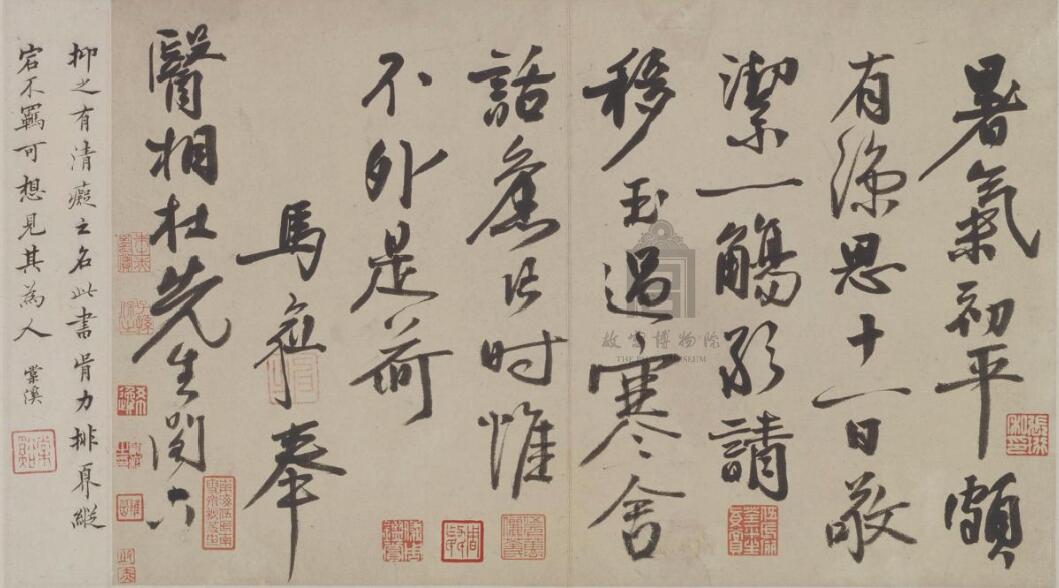 暑氣初平頗
有涼思十一日敬
潔一觴敢請
移玉過寒舍
話舊片時惟
不外是荷
馬愈奉
醫相杜先生閣下
抑之有清癡之名此書骨力排奡縱
宕不羈可想見其為人 棠溪
故宮博物院
THE PALACE MUSEUM